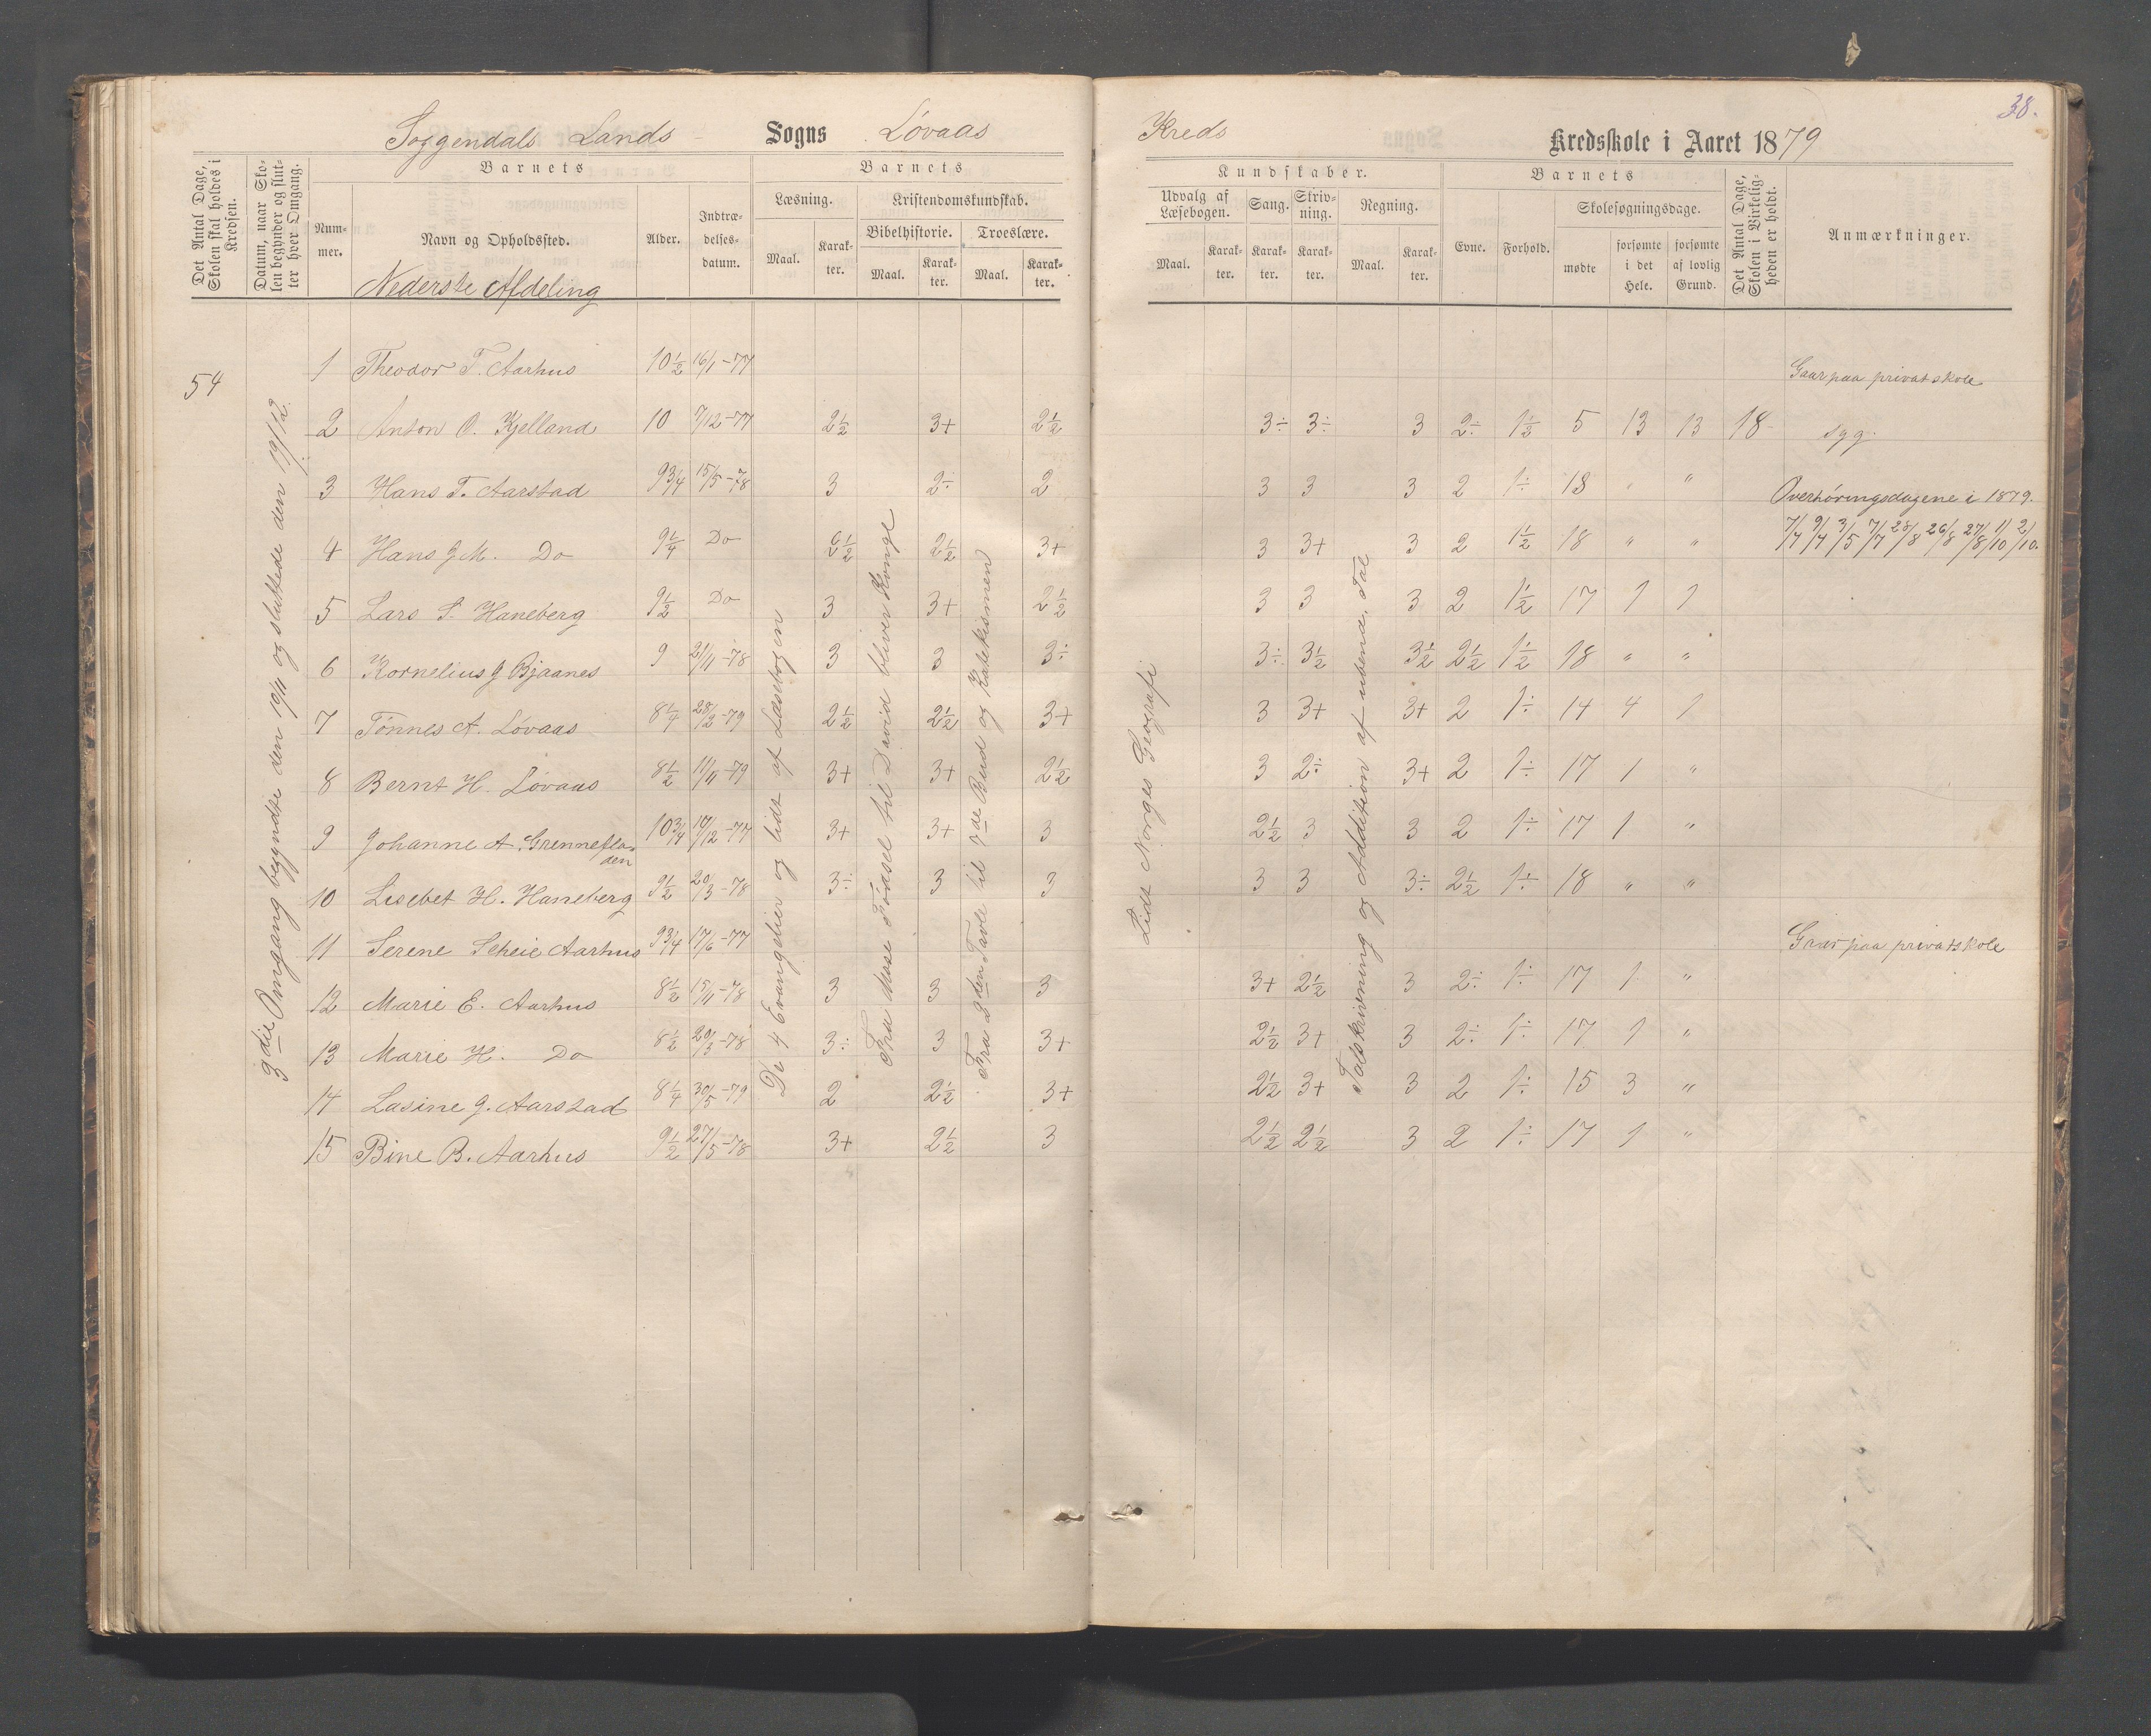 38.
Soggendals Lands Sogns Løvaas Kreds Kredsskole i Aaret 1879
Det Antal Dage, Skolen skal holdes i Kredsen.
Datum, naar Skolen begynder og slutter hver Omgang.
Barnets
Nummer.
Navn og Opholdssted.
Nederste Afdeling
Alder.
Indtrædelsesdatum.
Barnets
Læsning.
Maal.
Karakter.
Kristendomskundskab.
Bibelhistorie.
Maal.
Karakter.
Troeslære.
Maal.
Karakter.
Kundskaber.
Udvalg af Læsebogen.
Maal.
Karakter.
Sang.
Karakter.
Skrivning.
Karakter.
Regning.
Maal.
Karakter.
Barnets
Evne.
Forhold.
Skolesøgningsdage.
mødte
forsømte i det Hele.
forsømte af lovlig Grund.
Det Antal Dage, Skolen i Virkeligheden er holdt.
Anmærkninger.
54
3die Omgang begyndte den 19/11 og sluttede den 19/12.
De 4 Evangelier og lidt af Læsebogen
Fra Mose Fødsel til David bliver Konge
Fra 2den Tavle til 7de Bud og Katekismen
Lidt Norges Geografi
Talskrivning og Addition af ubenæ. Tal
1 Theodor T. Aarhus 10 1/2 16/1-77 Gaar paa privatskole
2 Anton O. Kjelland 10 7/12-77 2 1/2 3+ 2 1/2 3÷ 3÷ 3 2÷ 1 1/2 5 13 13 18 syg.
3 Hans T. Aarstad 9 3/4 15/5-78 3 2÷ 2 3 3 3 2 1÷ 18 " " Overhøringsdagene i 1879.
4 Hans G M. Do 9 1/4 Do 2 1/2 2 1/2 3+ 3 3+ 3 2 1 1/2 18 " " 7/4 9/4 3/5 7/7 25/8 26/8 27/8 1/10 2/10.
5 Lars S. Haneberg 9 1/2 Do 3 3+ 2 1/2 3 3 3 2 1 1/2 17 1 1
6 Kornelius G Bjaanes 9 21/11-78 3 3 3÷ 3÷ 3 1/2 3 1/2 2 1/2 1 1/2 18 " "
7 Tønnes A. Løvaas 8 1/4 28/2-79 2 1/2 2 1/2 3+ 3 3+ 3+ 2 1÷ 14 4 1
8 Bernt H. Løvaas 8 1/2 11/11-79 3+ 3+ 2 1/2 3 2÷ 3+ 2 1÷ 17 1 "
9 Johanne A. Grenneflaaden 10 3/4 10/12-77 3+ 3+ 3 2 1/2 3 3 2 1÷ 17 1 "
10 Lisebet H. Haneberg 9 1/2 20/3-78 3÷ 3 3 3 3 3÷ 2 1/2 1÷ 18 " "
11 Serene Scheie Aarhus 9 3/4 17/6-77 Gaar paa privatskole
12 Marie E. Aarhus 8 1/2 15/11-78 3 3 3 3+ 2 1/2 3 2÷ 1÷ 17 1 "
13 Marie H. Do 8 1/2 20/3-78 3÷ 3 3+ 2 1/2 3+ 3 2÷ 1÷ 17 1 "
14 Lasine G. Aarstad 8 1/4 30/5-79 2 2 1/2 3+ 2 1/2 3+ 3 2 1÷ 15 3 "
15 Bine B. Aarhus 9 1/2 27/5-78 3+ 2 1/2 3 2 1/2 2 1/2 3 2 1÷ 17 1 "